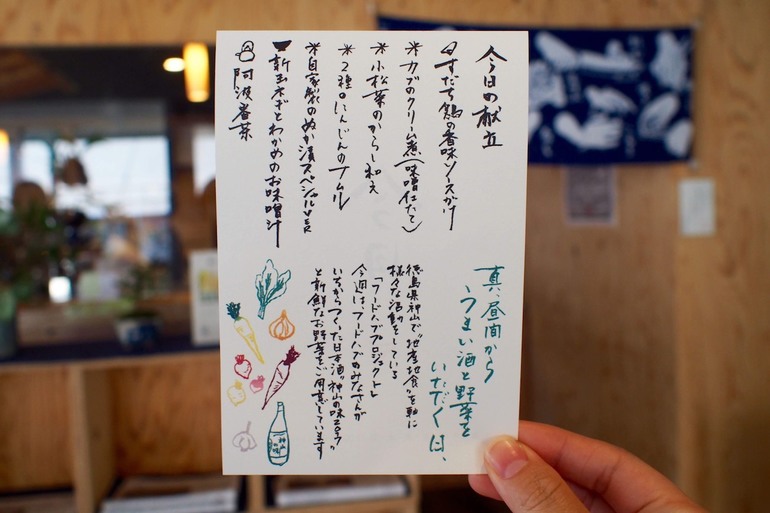 今日の献立
すだち鶏の香味ソースがけ
*カブのクリーム煮(味噌仕立て)
*小松菜のからし和え
*2種のにんじんのナムル
*自家製のぬか漬スペシャルVER
新玉ネギとわかめのお味噌汁
阿波番茶
真、昼間から
うまい酒と野菜を
いただく日、
徳島県神山で"地産地食"を軸に
様々な活動をしている
「フードハブプロジェクト」
今週は、フードハブのみなさんが
いちからつくった日本酒"神山の味2017"
と新鮮なお野菜をご用意しています
神山の味